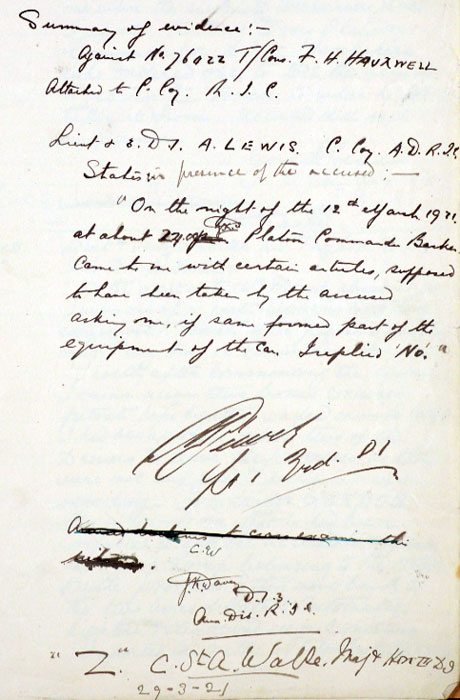 Summary of evidence:-
Against No. 76022 T/Cons. F. H. HAUXWELL
Attached to C. Coy. R. I. C.
Lieut & E. D I. A. LEWIS. C. Coy. A. D. R. I. C.
States in presence of the accused:-
"On the night of the 12th March 1921.
at about Platoon Commander Barker
came to me with certain articles, supposed
to have been taken by the accused
asking me, if same formed part of the
equipment of the Car. I replied 'No'."
3rd. DI
Accused declines to cross examine this
witness.
C.W
D. I. 3.
Aux Div. R. I. C.
"Z." C. St A. Wake, Major Hon III D I
29-3-21